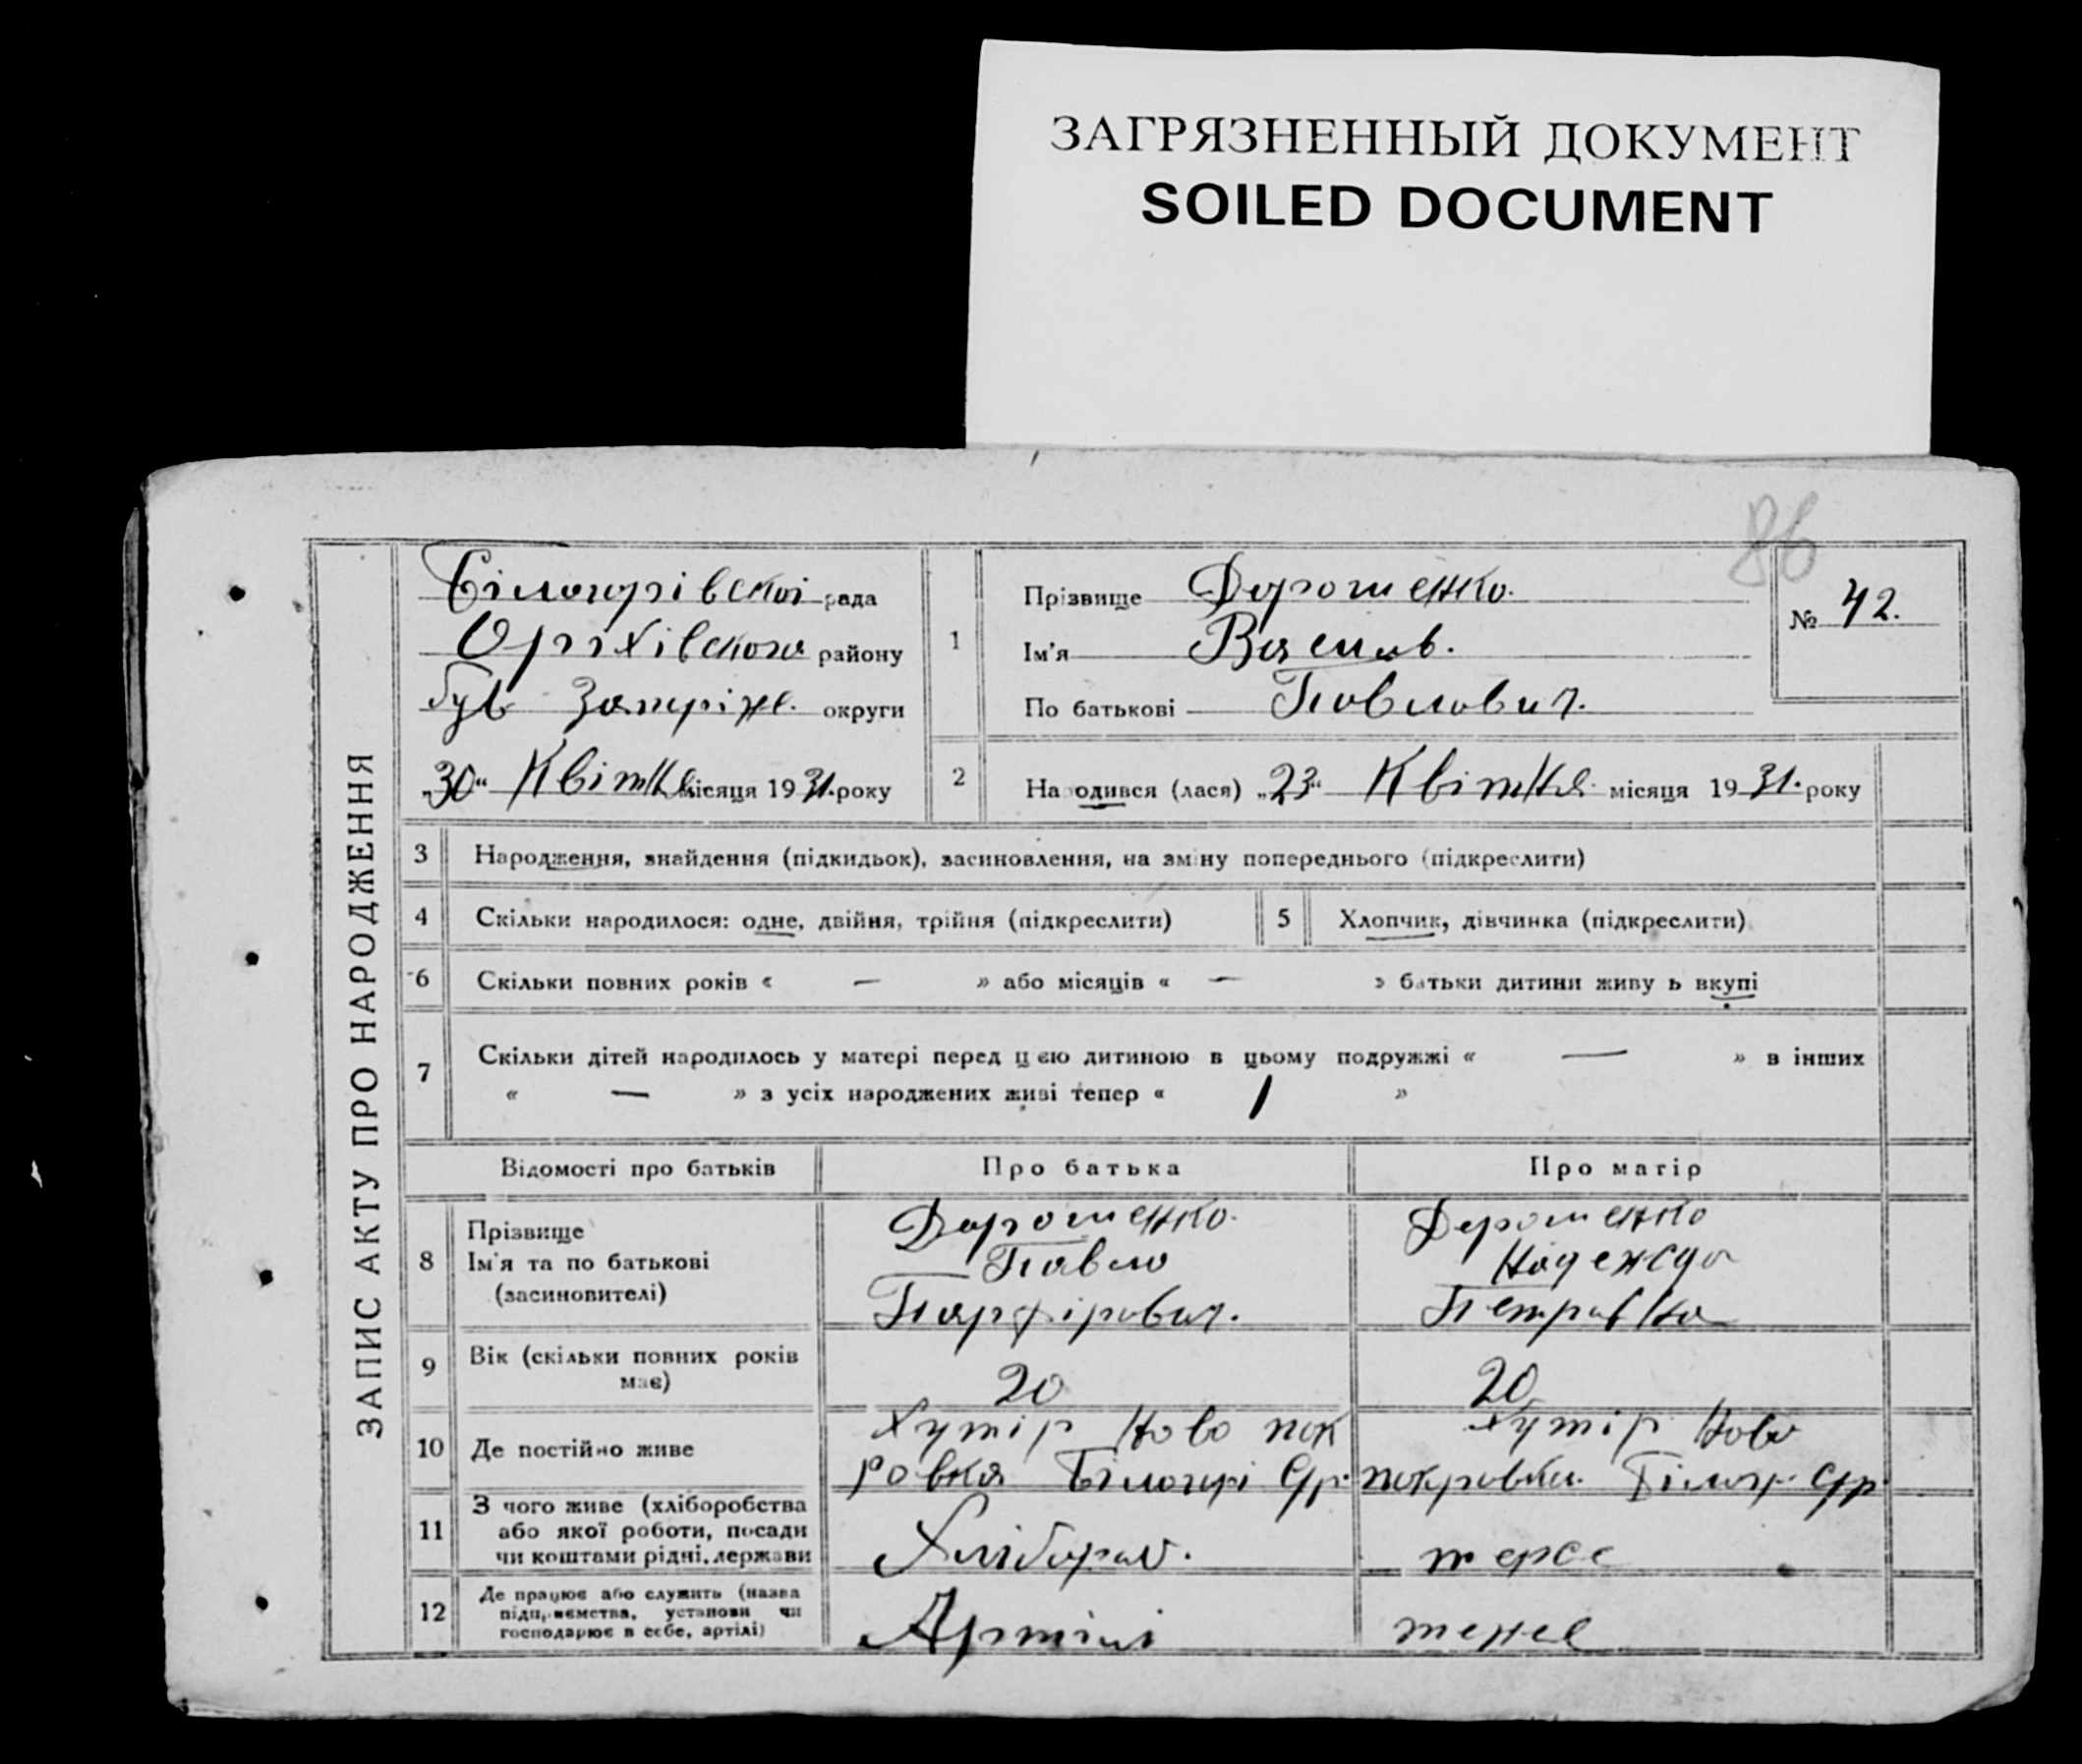 ЗАГРЯЗНЕННЫЙ ДОКУМЕНТ
SOILED DOCUMENT
86
ЗАПИС АКТУ ПРО НАРОДЖЕННЯ
Білогірівскої рада
Оріхівского району
був Запоріж. округи
„30“ Квітня місяця 1931. року
1
Прізвище Дорошенко.
Ім'я
По батькові Павлович.
№ 42.
2
Народився (лася) „23“ Квітня місяця 1931. року
3 Народження, знайдення (підкидьок), засиновлення, на зміну попереднього (підкреслити)
4 Скільки народилося: одне, двійня, трійня (підкреслити)
5 Хлопчик, дівчинка (підкреслити)
6 Скільки повних років « — » або місяців « — » батьки дитини живуть вкупі
7 Скільки дітей народилось у матері перед цією дитиною в цьому подружжі « — » в інших
« — » з усіх народжених живі тепер « 1 »
Відомості про батьків
Про батька
Про матір
8 Прізвище
Ім'я та по батькові
(засиновителі)
Дорошенко.
Павло
Парфірович.
Дорошенко
Надежда
Петровна
9 Вік (скільки повних років
має)
20
20
10 Де постійно живе
Хутір Ново пок
ровка Білогірі С/р.
Хутір Ново
покровка. Білог. С/р.
11 З чого живе (хліборобства
або якої роботи, посади
чи коштами рідні, держави
Хлібороб.
терсе
12 Де працює або служить (назва
підприємства, установи чи
господарює в себе, артілі)
Артілі
тенсе